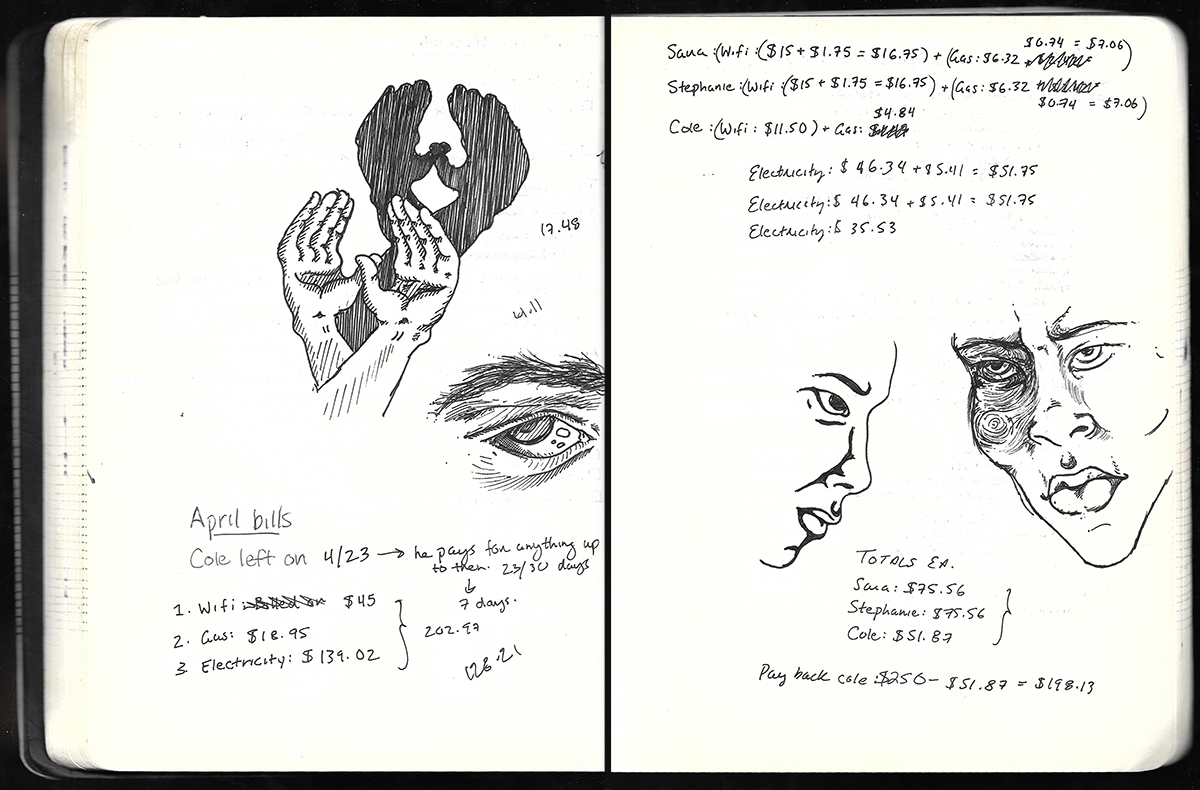 17.48
will
April bills
Cole left on 4/23 → he pays for anything up
to then. 23/30 days
↓
7 days.
1. Wifi: $45
2. Gas: $18.95
3. Electricity: $139.02
202.97
128.21
$0.74 = $7.06)
Sana: (Wifi: ($15 + $1.75 = $16.75) + (Gas: $6.32 +
Stephanie: (Wifi: ($15 + $1.75 = $16.75) + (Gas: $6.32 +
$0.74 = $7.06)
$4.84
Cole: (Wifi: $11.50) + Gas:
Electricity: $46.34 + $5.41 = $51.75
Electricity: $46.34 + $5.41 = $51.75
Electricity: $35.53
TOTALS EA.
Sana: $75.56
Stephanie: $75.56
Cole: $51.87
Pay back cole: $250 - $51.87 = $198.13